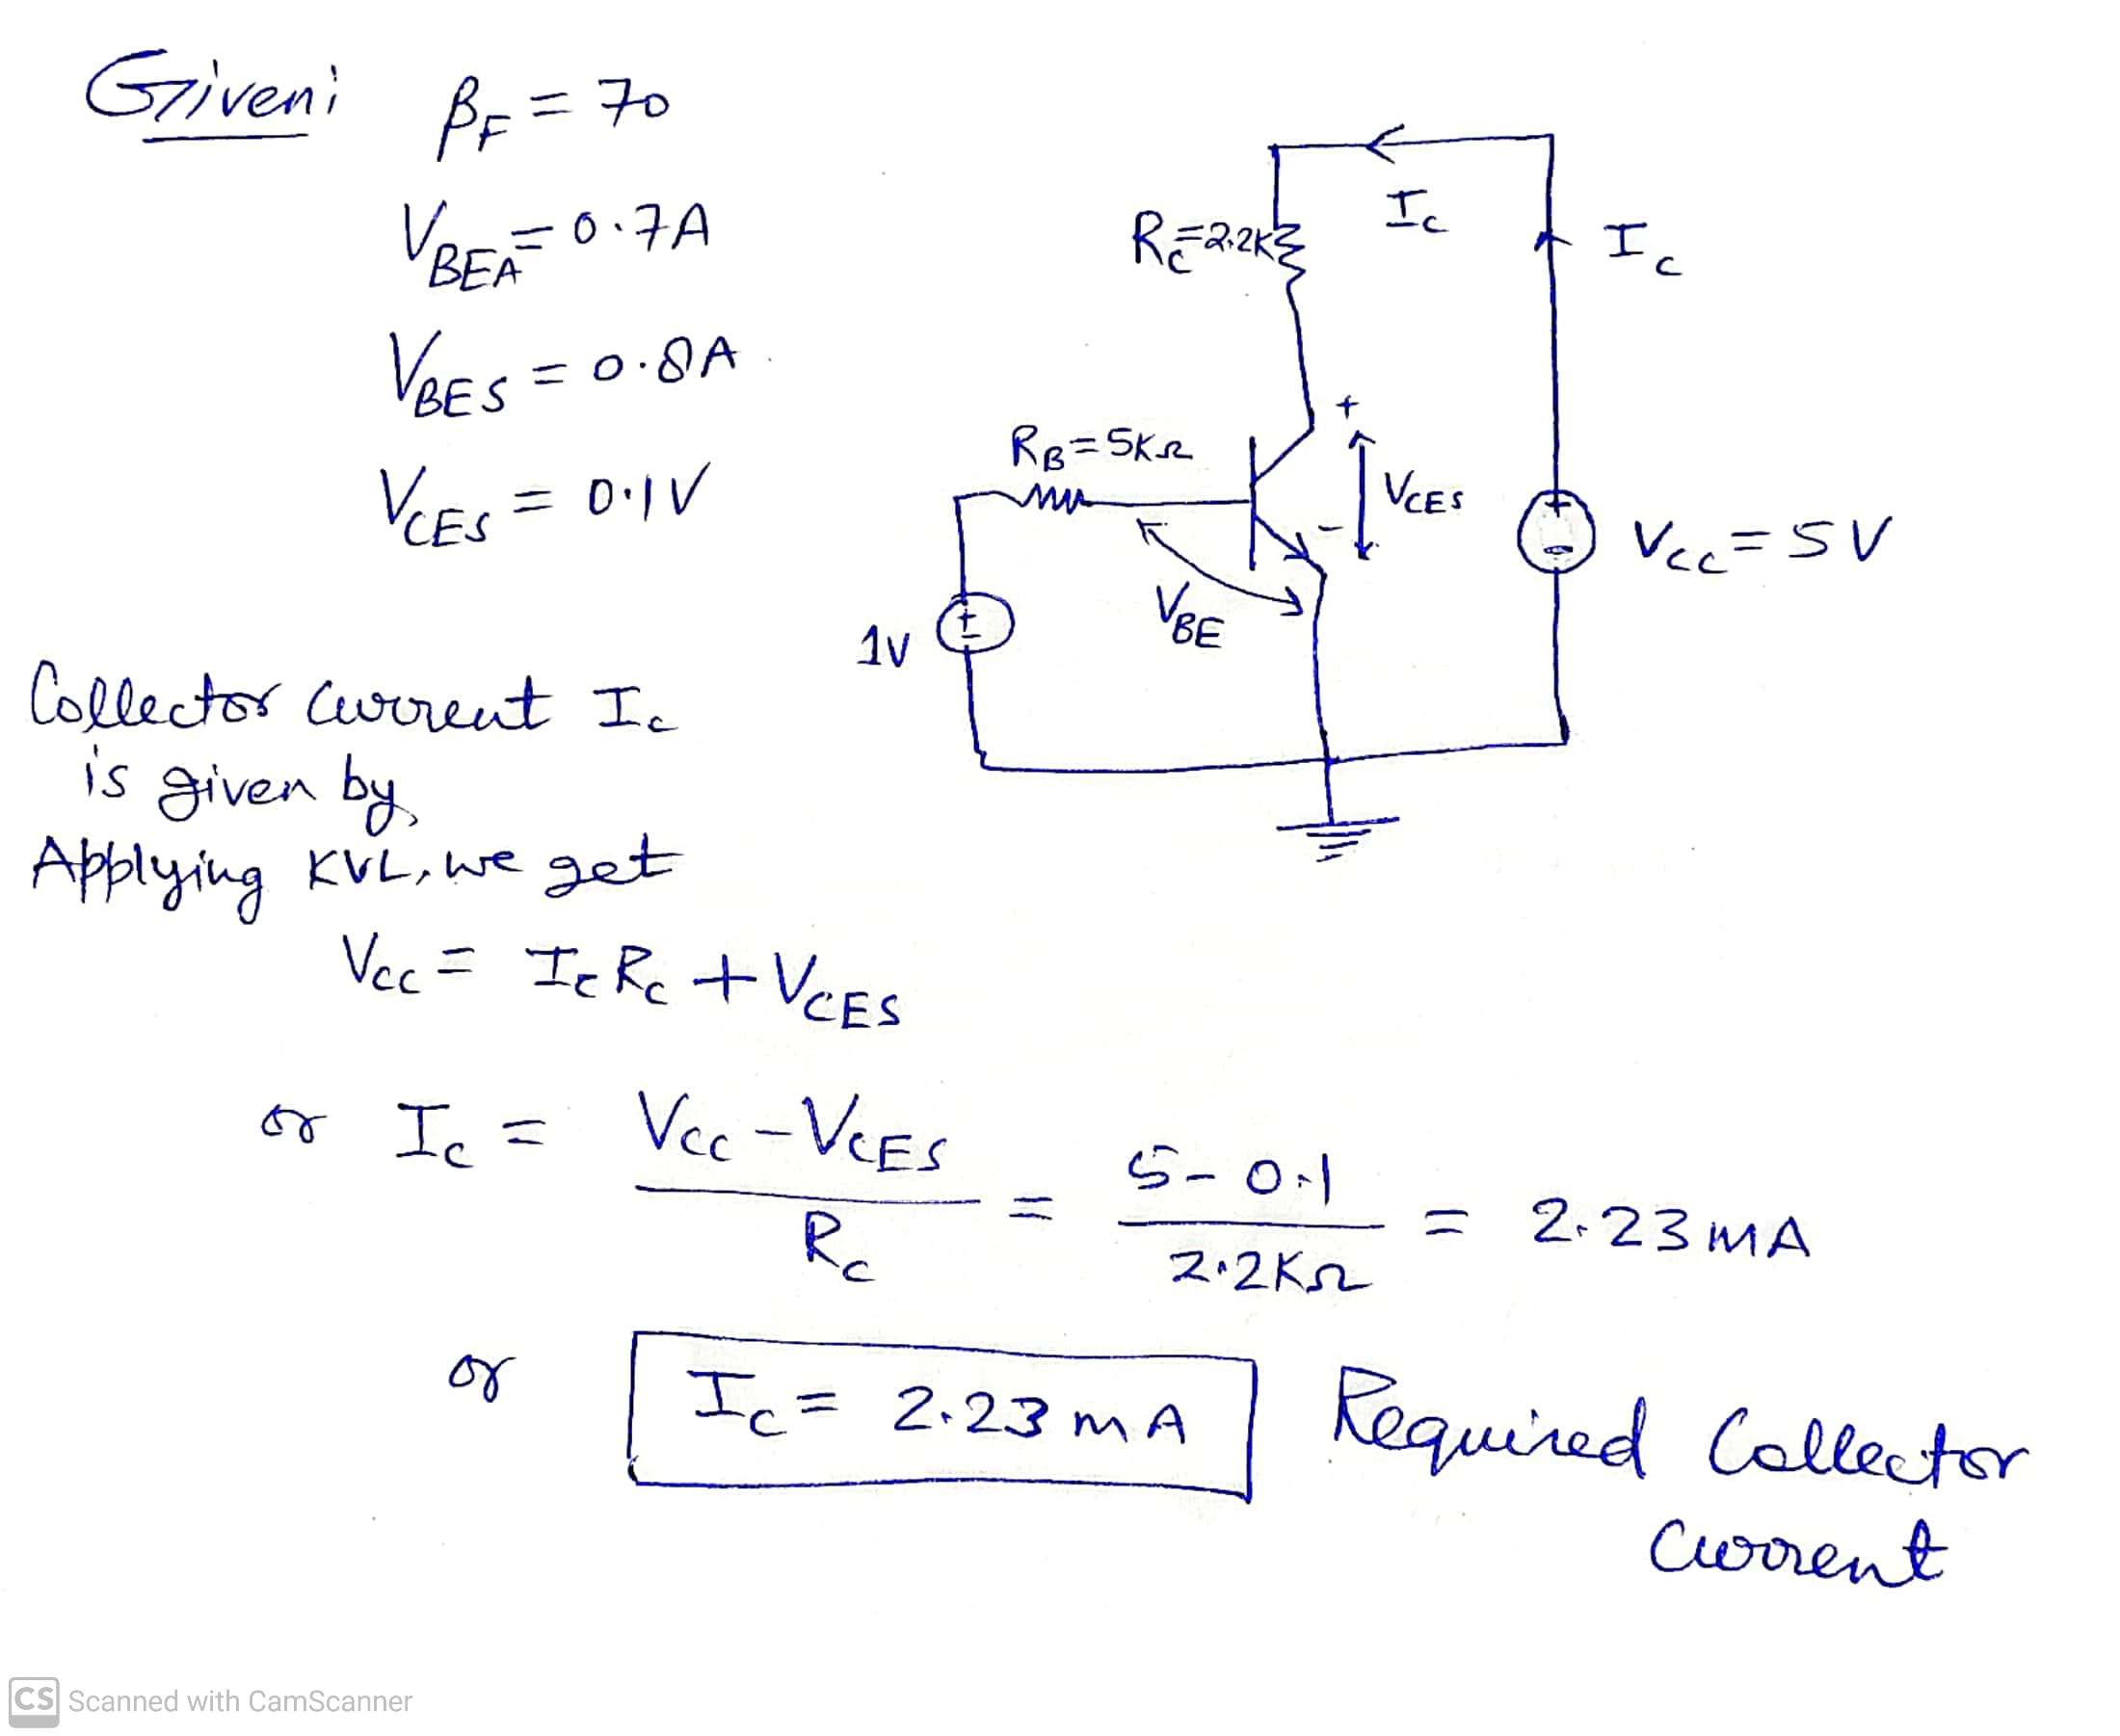 Given: βF = 70
VBEA = 0.7A
VBES = 0.8A
VCES = 0.1V
IC
RC=2.2K
IC
+
RB=5KΩ
VCES
-
+
-
VCC=5V
VBE
1V
+
-
Collector Current IC
is given by,
Applying KVL, we get
VCC = ICRC + VCES
or IC = VCC - VCES / RC = 5-0.1 / 2.2KΩ = 2.23 mA
or IC = 2.23 mA Required Collector
Current
CS Scanned with CamScanner